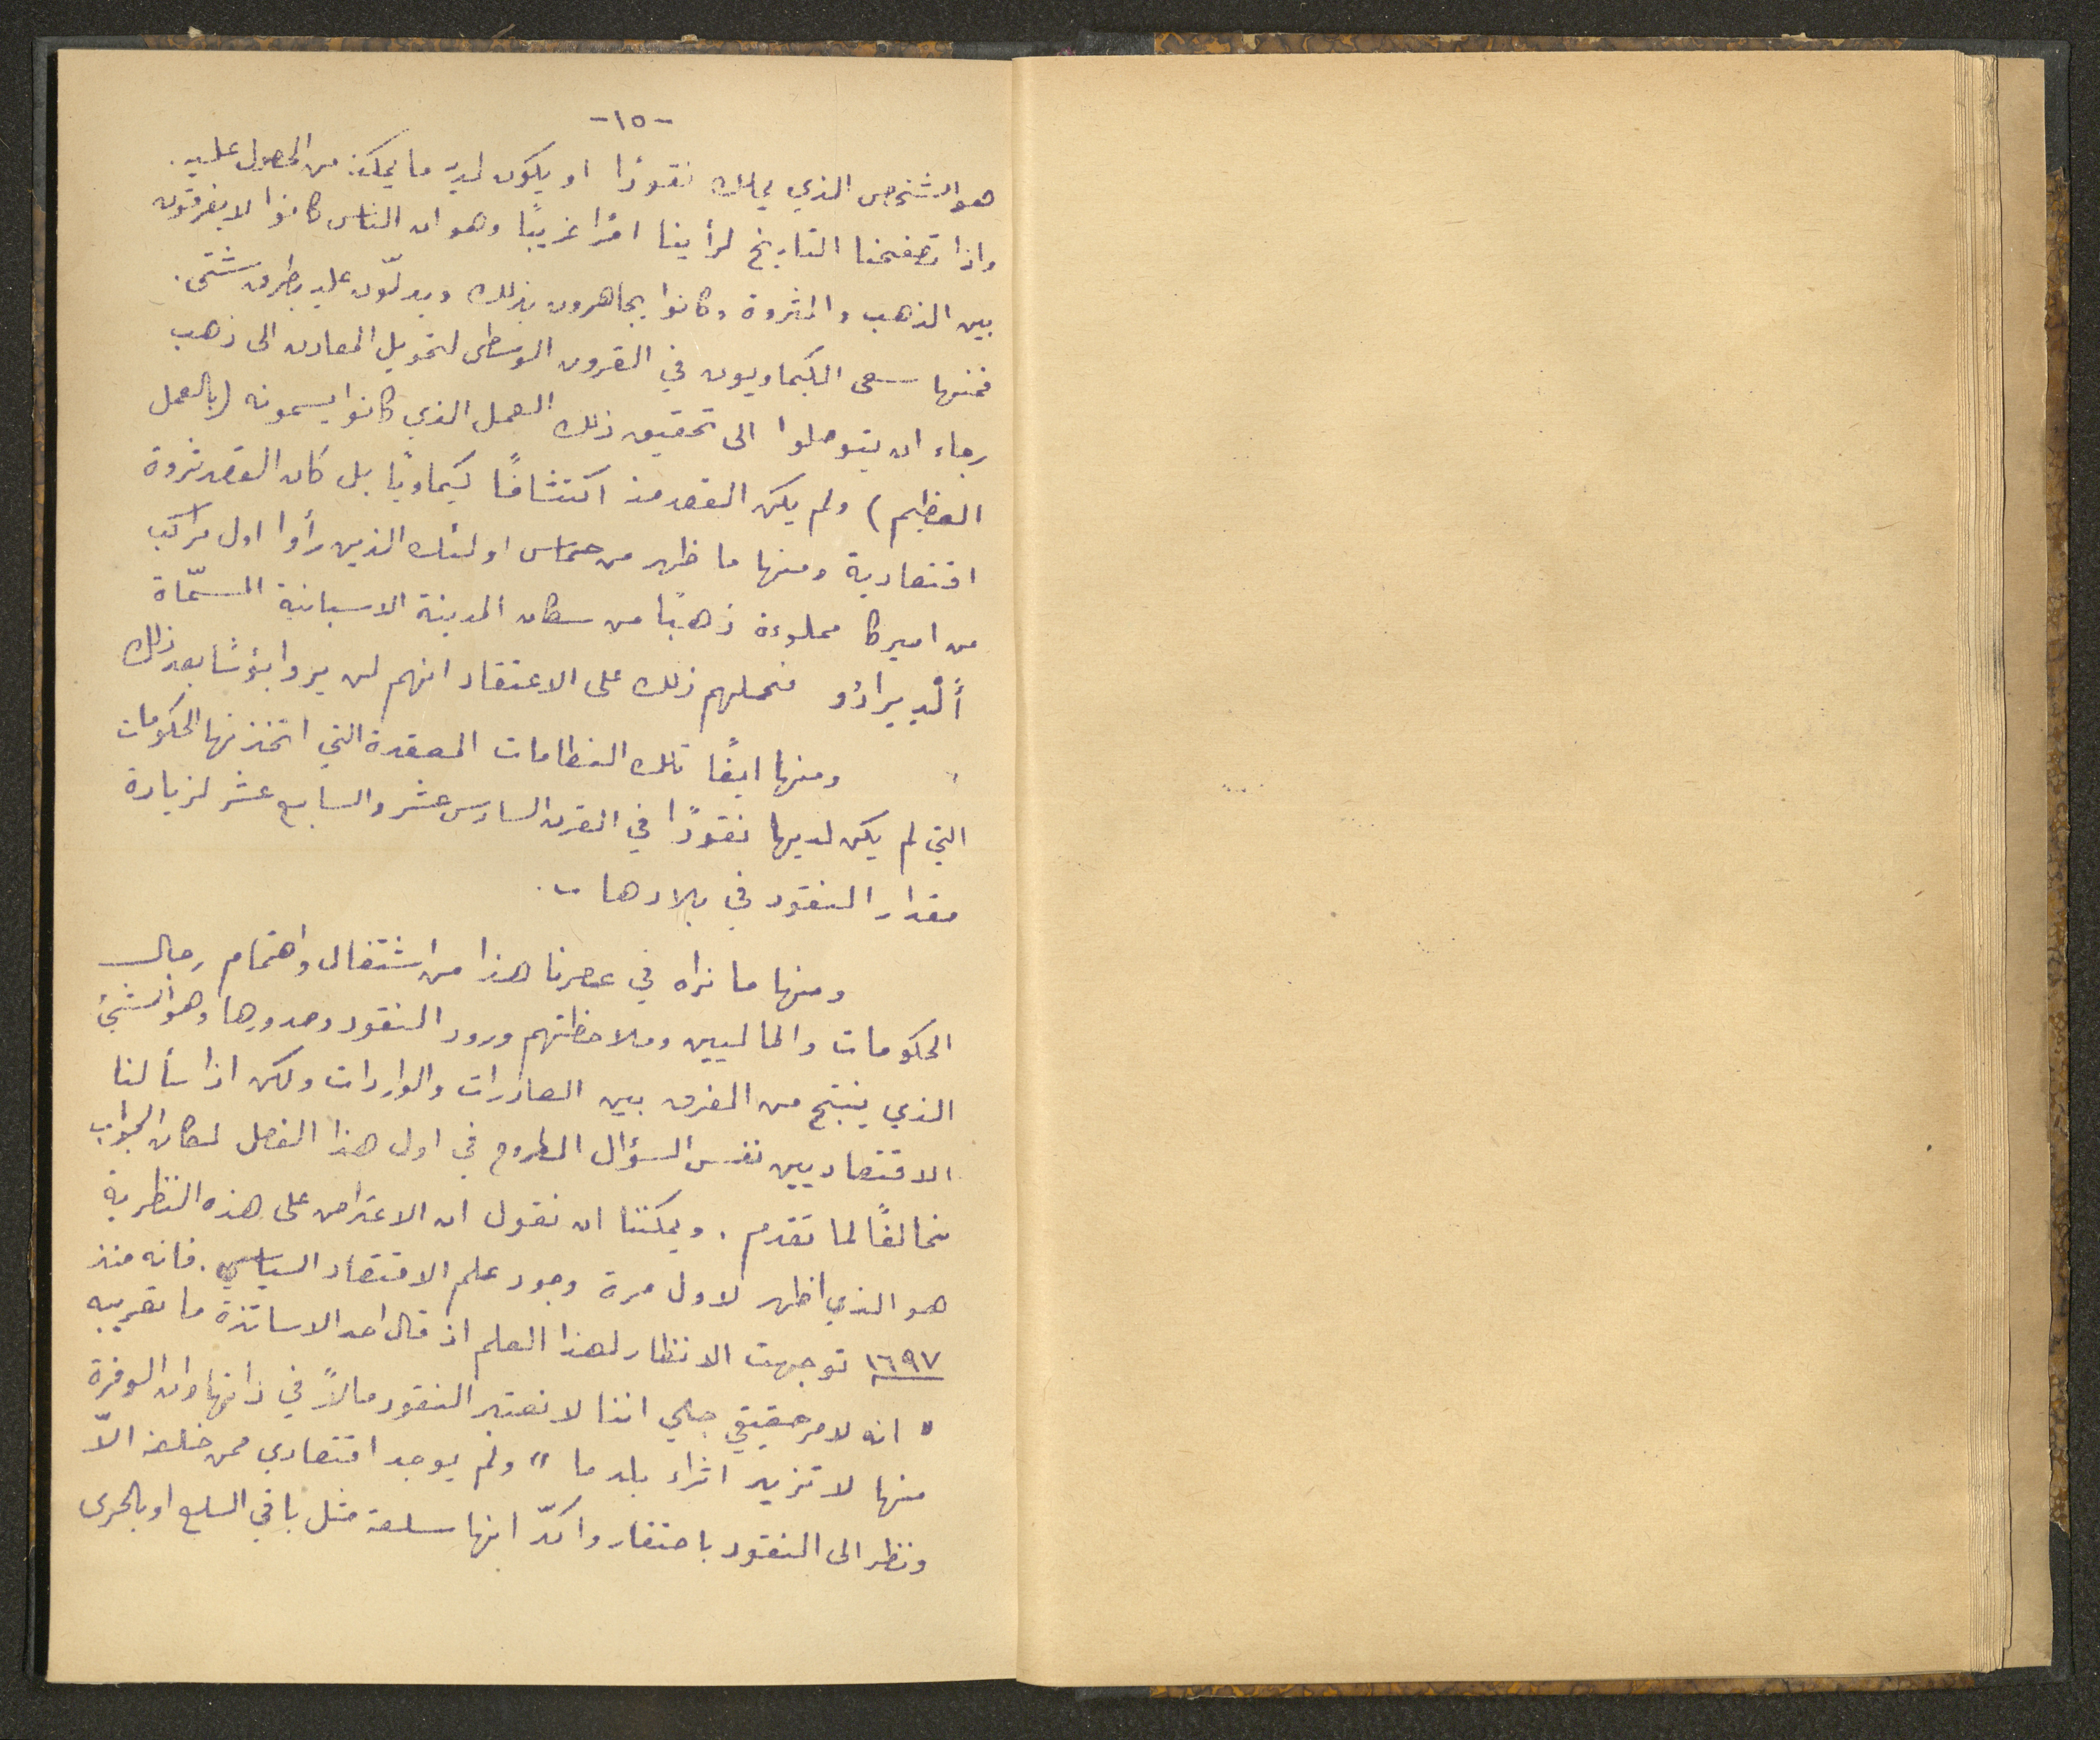 -١٥-
هو الشخص الذي يملك نقودًا او يكون لديه ما يمكنه من الحصول عليه.
واذا تصفحنا التاريخ لرأينا امرًا غريبًا وهو ان الناس كانوا لا يفرقون
بين الذهب والثروة وكانوا يجاهرون بذلك ويدلّون عليه بطرق شتى.
فمنها سعى الكيماويون في القرون الوسطى لتحويل المعادن الى ذهب
رجاء ان يتوصلوا الى تحقيق ذلك العمل الذي كانوا يسمونه (بالعمل
العظيم) ولم يكن القصد منه اكتشافًا كيماويًا بل كان القصد ثروة
اقتصادية ومنها ما ظهر من حماس اولئك الذين رأوا اول مراكب
من اميركا مملوءة ذهبًا من سكان المدينة الاسبانية المسمّاة
ألديرادُو فحملهم ذلك على الاعتقاد انهم لن يروا بؤسًا بعد ذلك
ومنها ايضًا تلك النظامات المعقدة التي اتخذتها الحكومات
التي لم يكن لديها نقودًا في القرن السادس عشر والسابع عشر لزيادة
مقدار النقود في بلادها.
ومنها ما نراه في عصرنا هذا من اشتغال واهتمام رجال
الحكومات والماليين وملاحظتهم ورود النقود وصدورها وهو الشيئ
الذي ينتج من الفرق بين الصادرات والواردات ولكن اذا سألنا
الاقتصاديين نفس السؤال المطروح في اول هذا الفصل لكان الجواب
مخالفًا لما تقدم. ويمكننا ان نقول ان الاعتراض على هذه النظرية
هو الذي اظهر لاول مرة وجود علم الاقتصاد السياسي. فانه منذ
١٦٩٧ توجهت الانظار لهذا العلم اذ قال احد الاساتذة ما تعريبه
" انه لامر حقيقي جلي اننا لا نعتبر النقود مالاً في ذاتها وان الوفرة
منها لا تزيد اثراء بلد ما " ولم يوجد اقتصادي ممن خلفه الاّ
ونظر الى النقود باحتقار واكدّ انها سلعة مثل باقي السلع او بالحرى